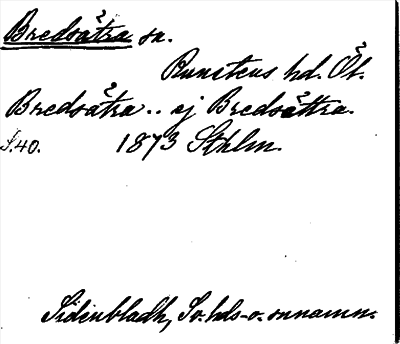 Bredsätra sn.
Runstens hd. Öl.
Bredsätra .. ej Bredsättra.
S. 40. 1873 Sthlm.
Sidenbladh, Sv. hds- o. snnamn.